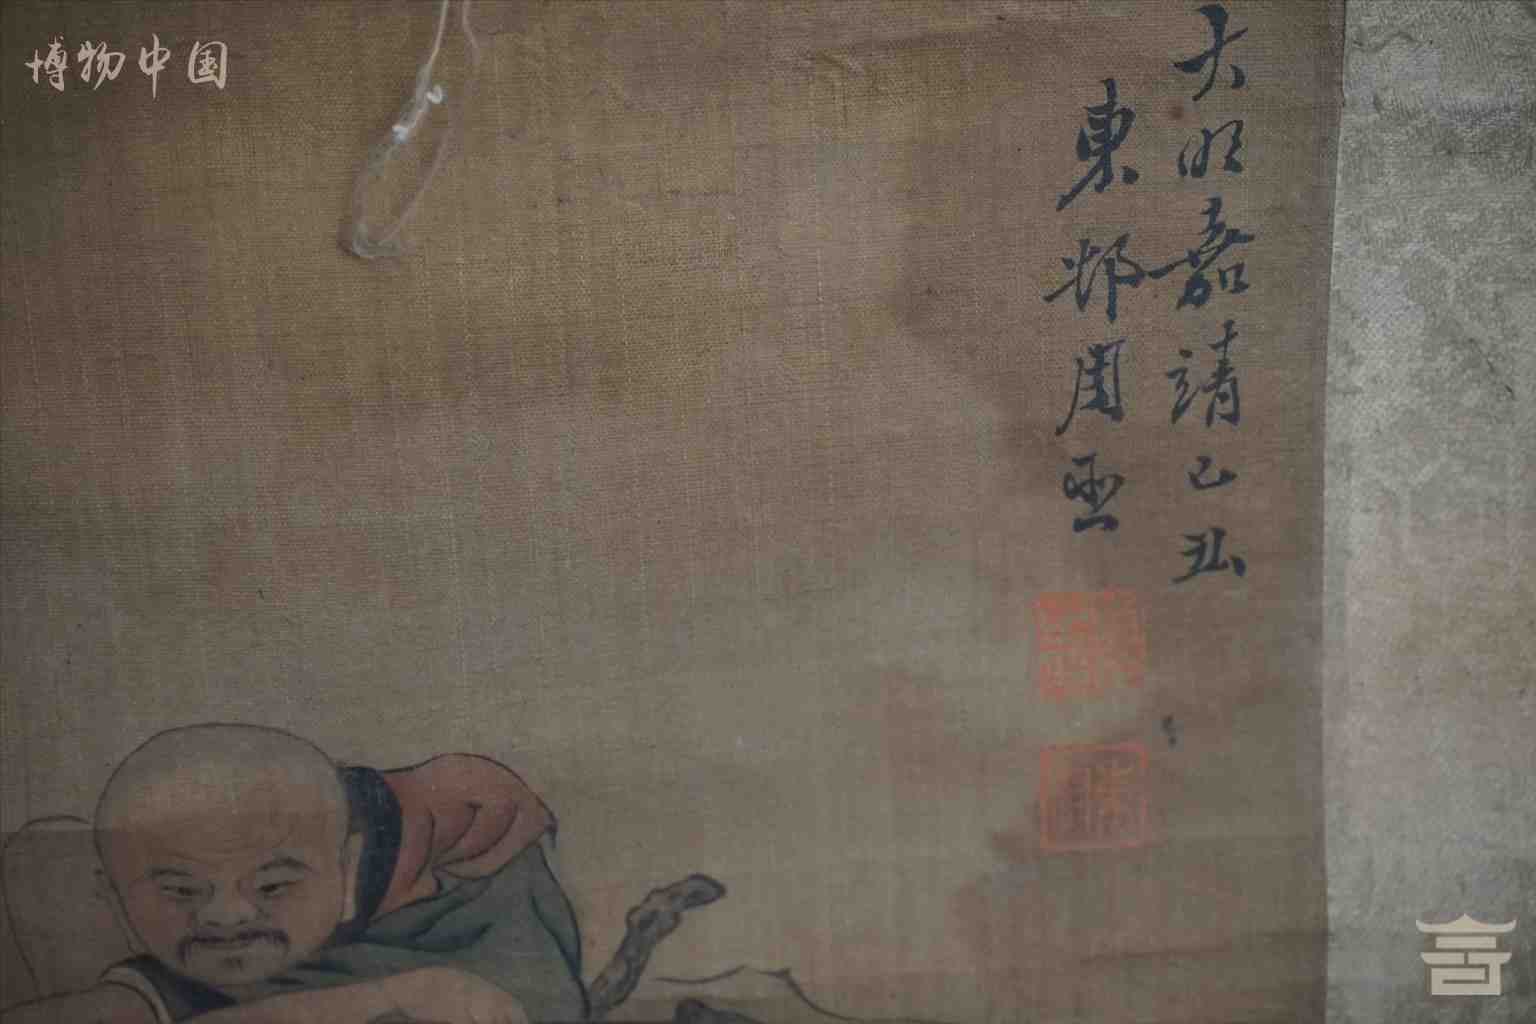 博物中国
大明嘉靖己丑
東邨周臣